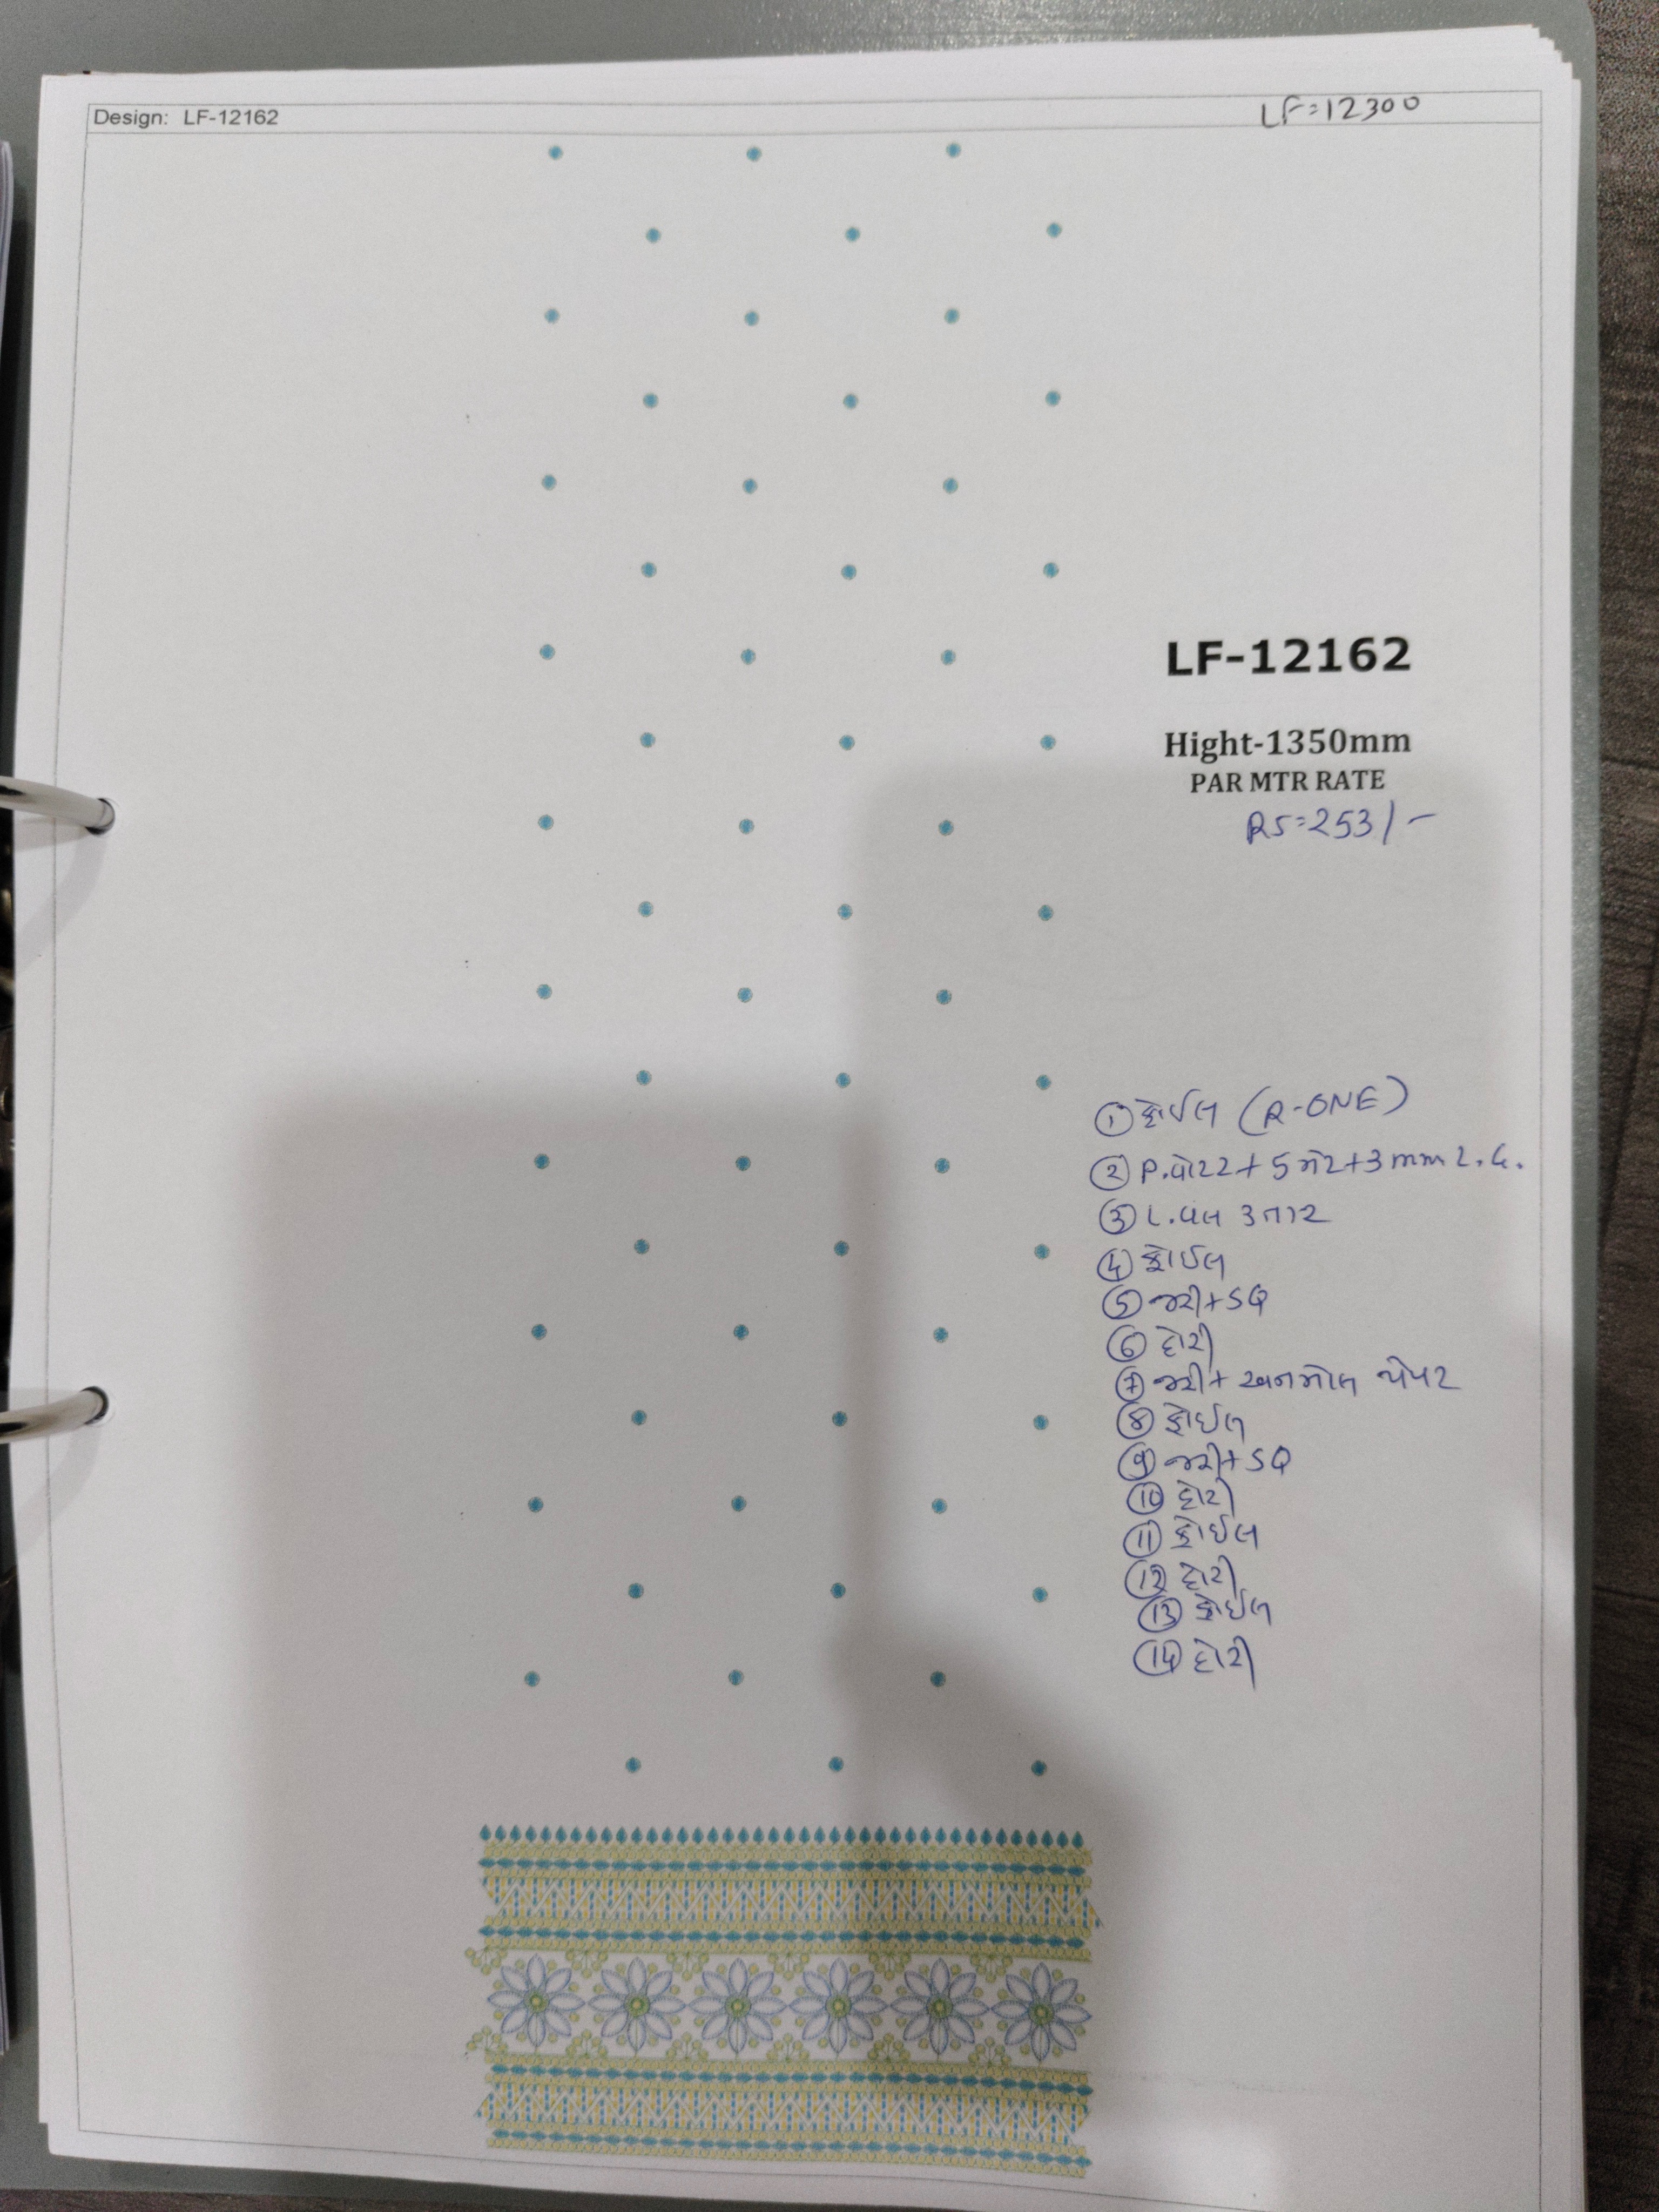 Design: LF-12162
LF=12300
LF-12162
Hight-1350mm
PAR MTR RATE
RS=253/-
① ફોઈલ (R-ONE)
② P. + 5 + 3mm
③ 3તાર
④ ફોઈલ
⑤ જરી+SQ
⑥ દોરી
⑦ જરી+ અનમોલ પેપર
⑧ ફોઈલ
⑨ જરી+SQ
⑩ દોરી
⑪ ફોઈલ
⑫ દોરી
⑬ ફોઈલ
⑭ દોરી